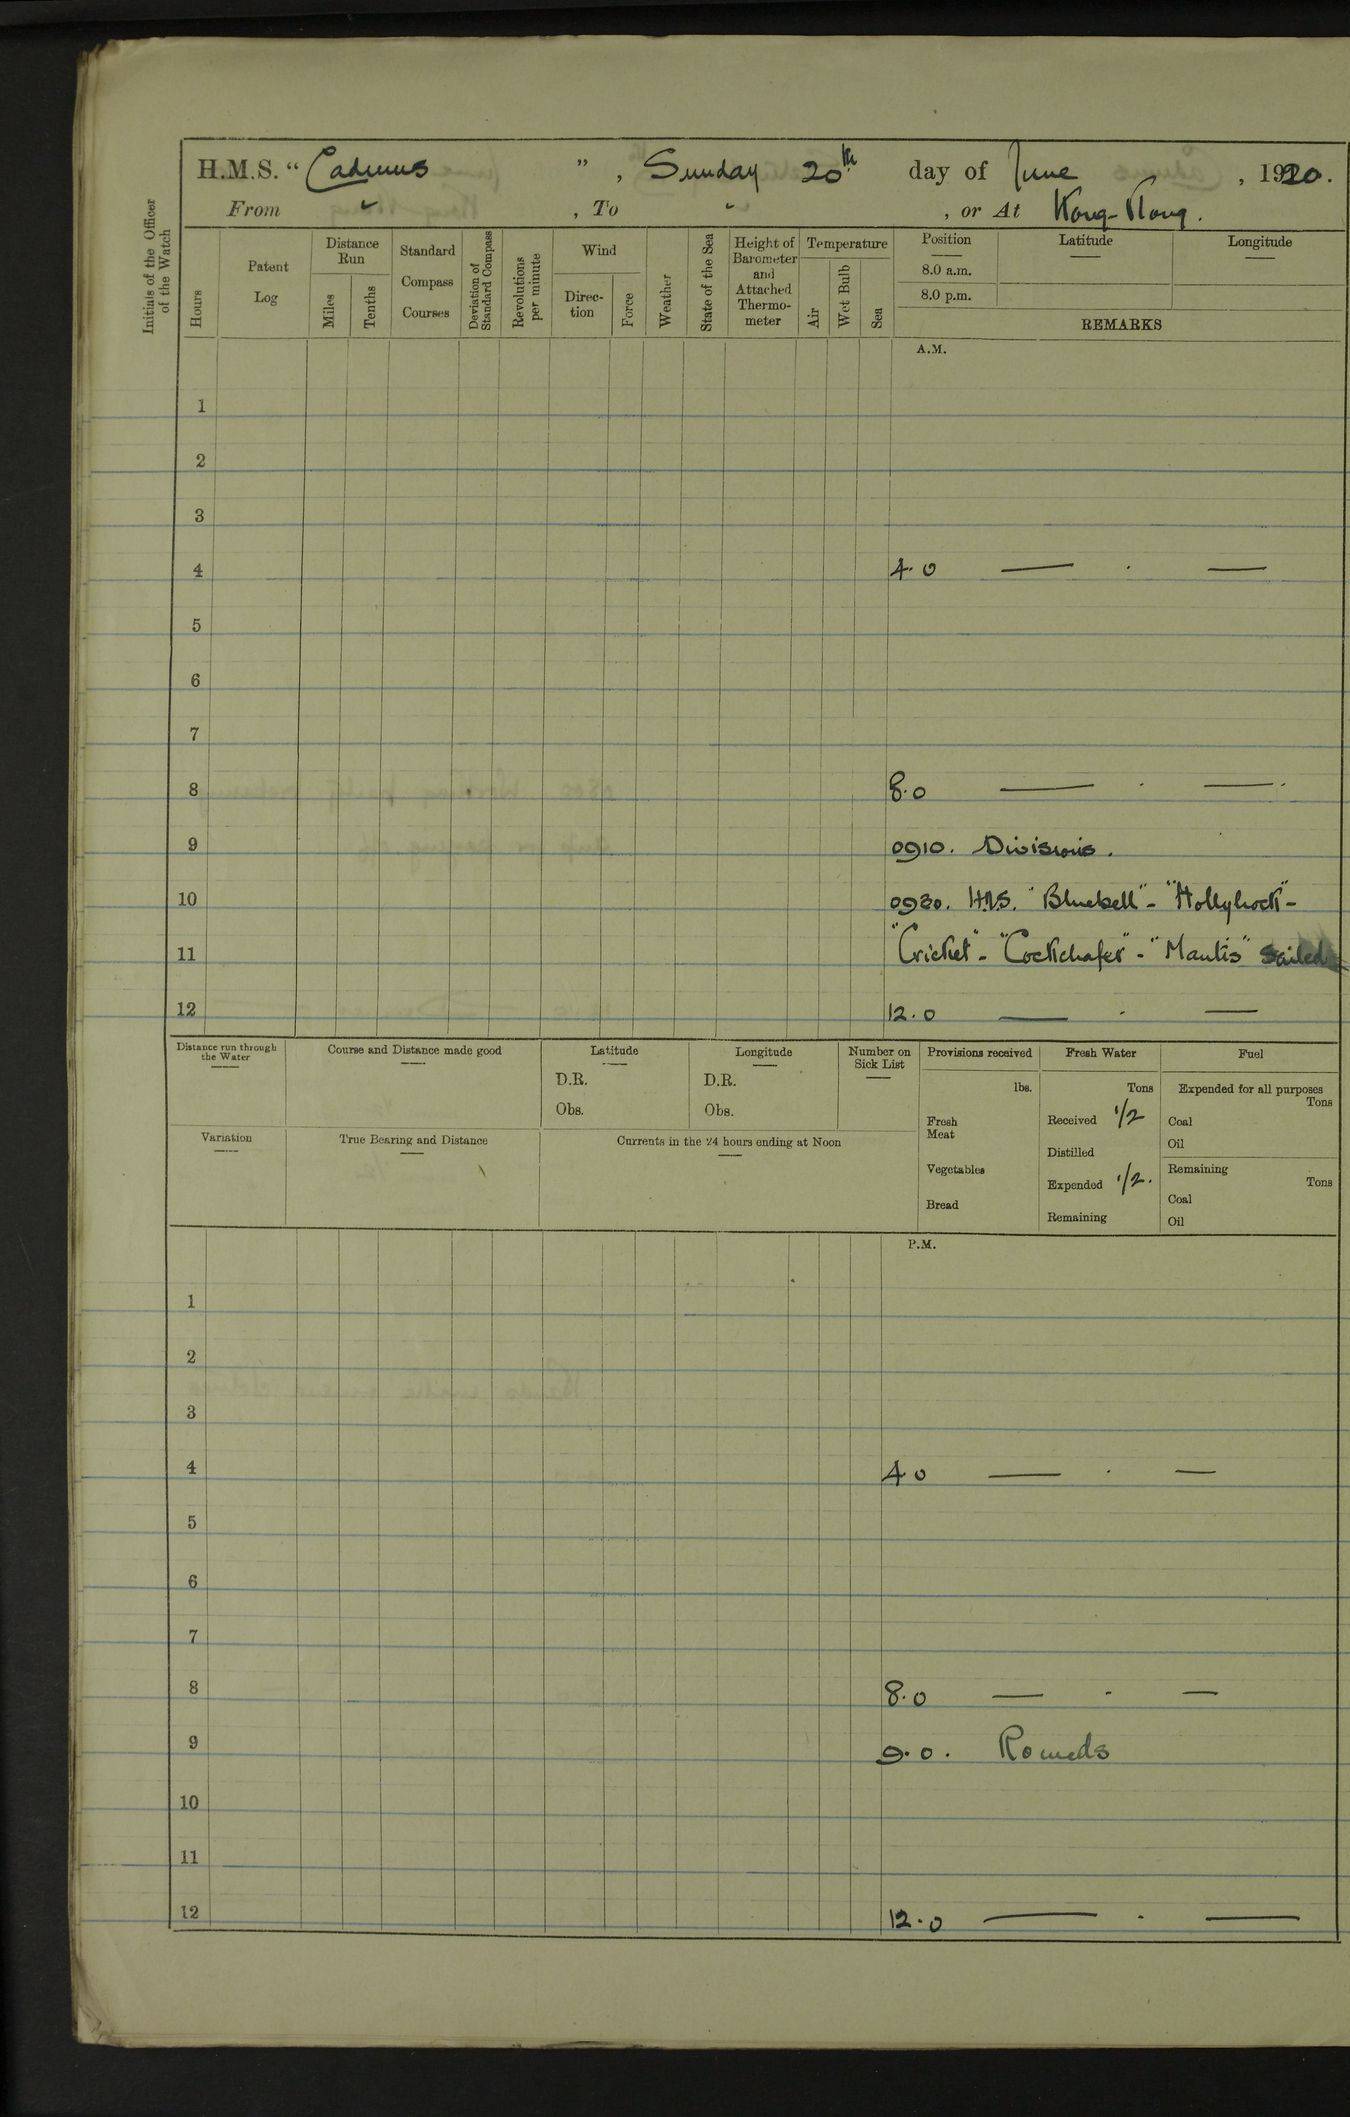 H.M.S. “ Cadmus ” , Sunday 20th day of June , 1920.
From " , To " , or At Hong-Kong.
Initials of the Officer of the Watch
Hours
Patent Log
Distance Run
Miles
Tenths
Standard Compass Courses
Deviation of Standard Compass
Revolutions per minute
Wind
Direc-tion
Force
Weather
State of the Sea
Height of Barometer and Attached Thermo-meter
Temperature
Air
Wet Bulb
Sea
Position
8.0 a.m.
8.0 p.m.
Latitude
Longitude
REMARKS
A.M.
1
2
3
4 4.0 — . —
5
6
7
8 8.0 — . —
9 0910. Divisions.
10 0930. H.M.S. "Bluebell" - "Hollyhock" -
11 "Cricket" - "Cockchafer" - "Mantis" sailed
12 12.0 — . —
Distance run through the Water
Course and Distance made good
Latitude
D.R.
Obs.
Longitude
D.R.
Obs.
Number on Sick List
Provisions received
lbs.
Fresh Meat
Vegetables
Bread
Fresh Water
Tons
Received 1/2
Distilled
Expended 1/2.
Remaining
Fuel
Expended for all purposes
Tons
Coal
Oil
Remaining
Tons
Coal
Oil
Variation
True Bearing and Distance
Currents in the 24 hours ending at Noon
P.M.
1
2
3
4 4.0 — . —
5
6
7
8 8.0 — . —
9 9.0. Rounds
10
11
12 12.0 — . —